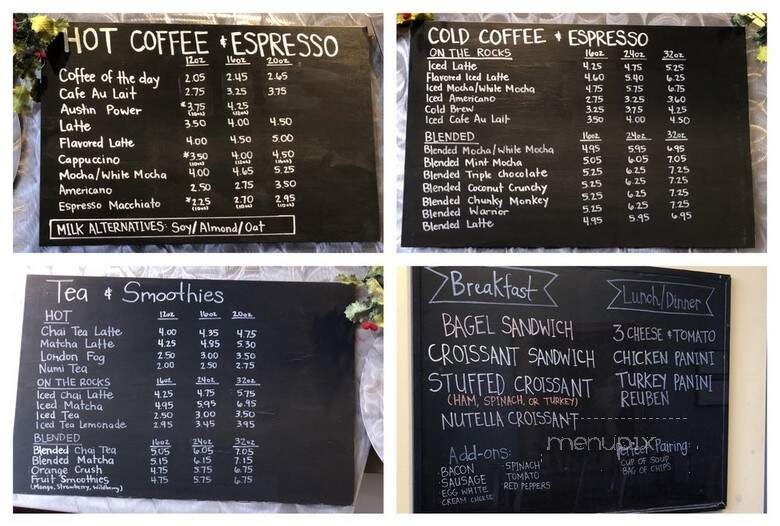 HOT COFFEE & ESPRESSO
12oz 16oz 20oz
Coffee of the day 2.05 2.45 2.65
Cafe Au Lait 2.75 3.25 3.75
Austin Power *3.75 (10oz) 4.25 (12oz)
Latte 3.50 4.00 4.50
Flavored Latte 4.00 4.50 5.00
Cappuccino *3.50 4.00 4.50
Mocha/White Mocha 4.00 4.65 5.25
Americano 2.50 2.75 3.50
Espresso Macchiato *2.25 2.70 2.95
MILK ALTERNATIVES: Soy/Almond/Oat
COLD COFFEE & ESPRESSO
ON THE ROCKS 16oz 24oz 32oz
Iced Latte 4.25 4.75 5.25
Flavored Iced Latte 4.60 5.40 6.25
Iced Mocha/White Mocha 4.75 5.75 6.75
Iced Americano 2.75 3.25 3.60
Cold Brew 3.25 3.75 4.25
Iced Cafe Au Lait 3.50 4.00 4.50
BLENDED 16oz 24oz 32oz
Blended Mocha/White Mocha 4.95 5.95 6.95
Blended Mint Mocha 5.05 6.05 7.05
Blended Triple Chocolate 5.25 6.25 7.25
Blended Coconut Crunchy 5.25 6.25 7.25
Blended Chunky Monkey 5.25 6.25 7.25
Blended Warrior 5.25 6.25 7.25
Blended Latte 4.95 5.95 6.95
Tea & Smoothies
HOT 12oz 16oz 20oz
Chai Tea Latte 4.00 4.35 4.75
Matcha Latte 4.25 4.95 5.30
London Fog 2.50 3.00 3.50
Numi Tea 2.00 2.50 2.75
ON THE ROCKS 16oz 24oz 32oz
Iced Chai Latte 4.25 4.75 5.75
Iced Matcha 4.95 5.95 6.95
Iced Tea 2.50 3.00 3.50
Iced Tea Lemonade 2.95 3.45 3.95
BLENDED 16oz 24oz 32oz
Blended Chai Tea 5.05 6.05 7.05
Blended Matcha 5.15 6.15 7.15
Orange Crush 4.75 5.75 6.75
Fruit Smoothies 4.75 5.75 6.75
(Mango, Strawberry, Wildberry)
Breakfast
BAGEL SANDWICH
CROISSANT SANDWICH
STUFFED CROISSANT
(HAM, SPINACH, OR TURKEY)
NUTELLA CROISSANT
Add-ons:
-BACON
-SAUSAGE
-EGG WHITE
-CREAM CHEESE
-SPINACH
-TOMATO
-RED PEPPERS
Lunch/Dinner
3 CHEESE & TOMATO
CHICKEN PANINI
TURKEY PANINI
REUBEN
Perfect Pairing:
-CUP OF SOUP
-BAG OF CHIPS
menupix